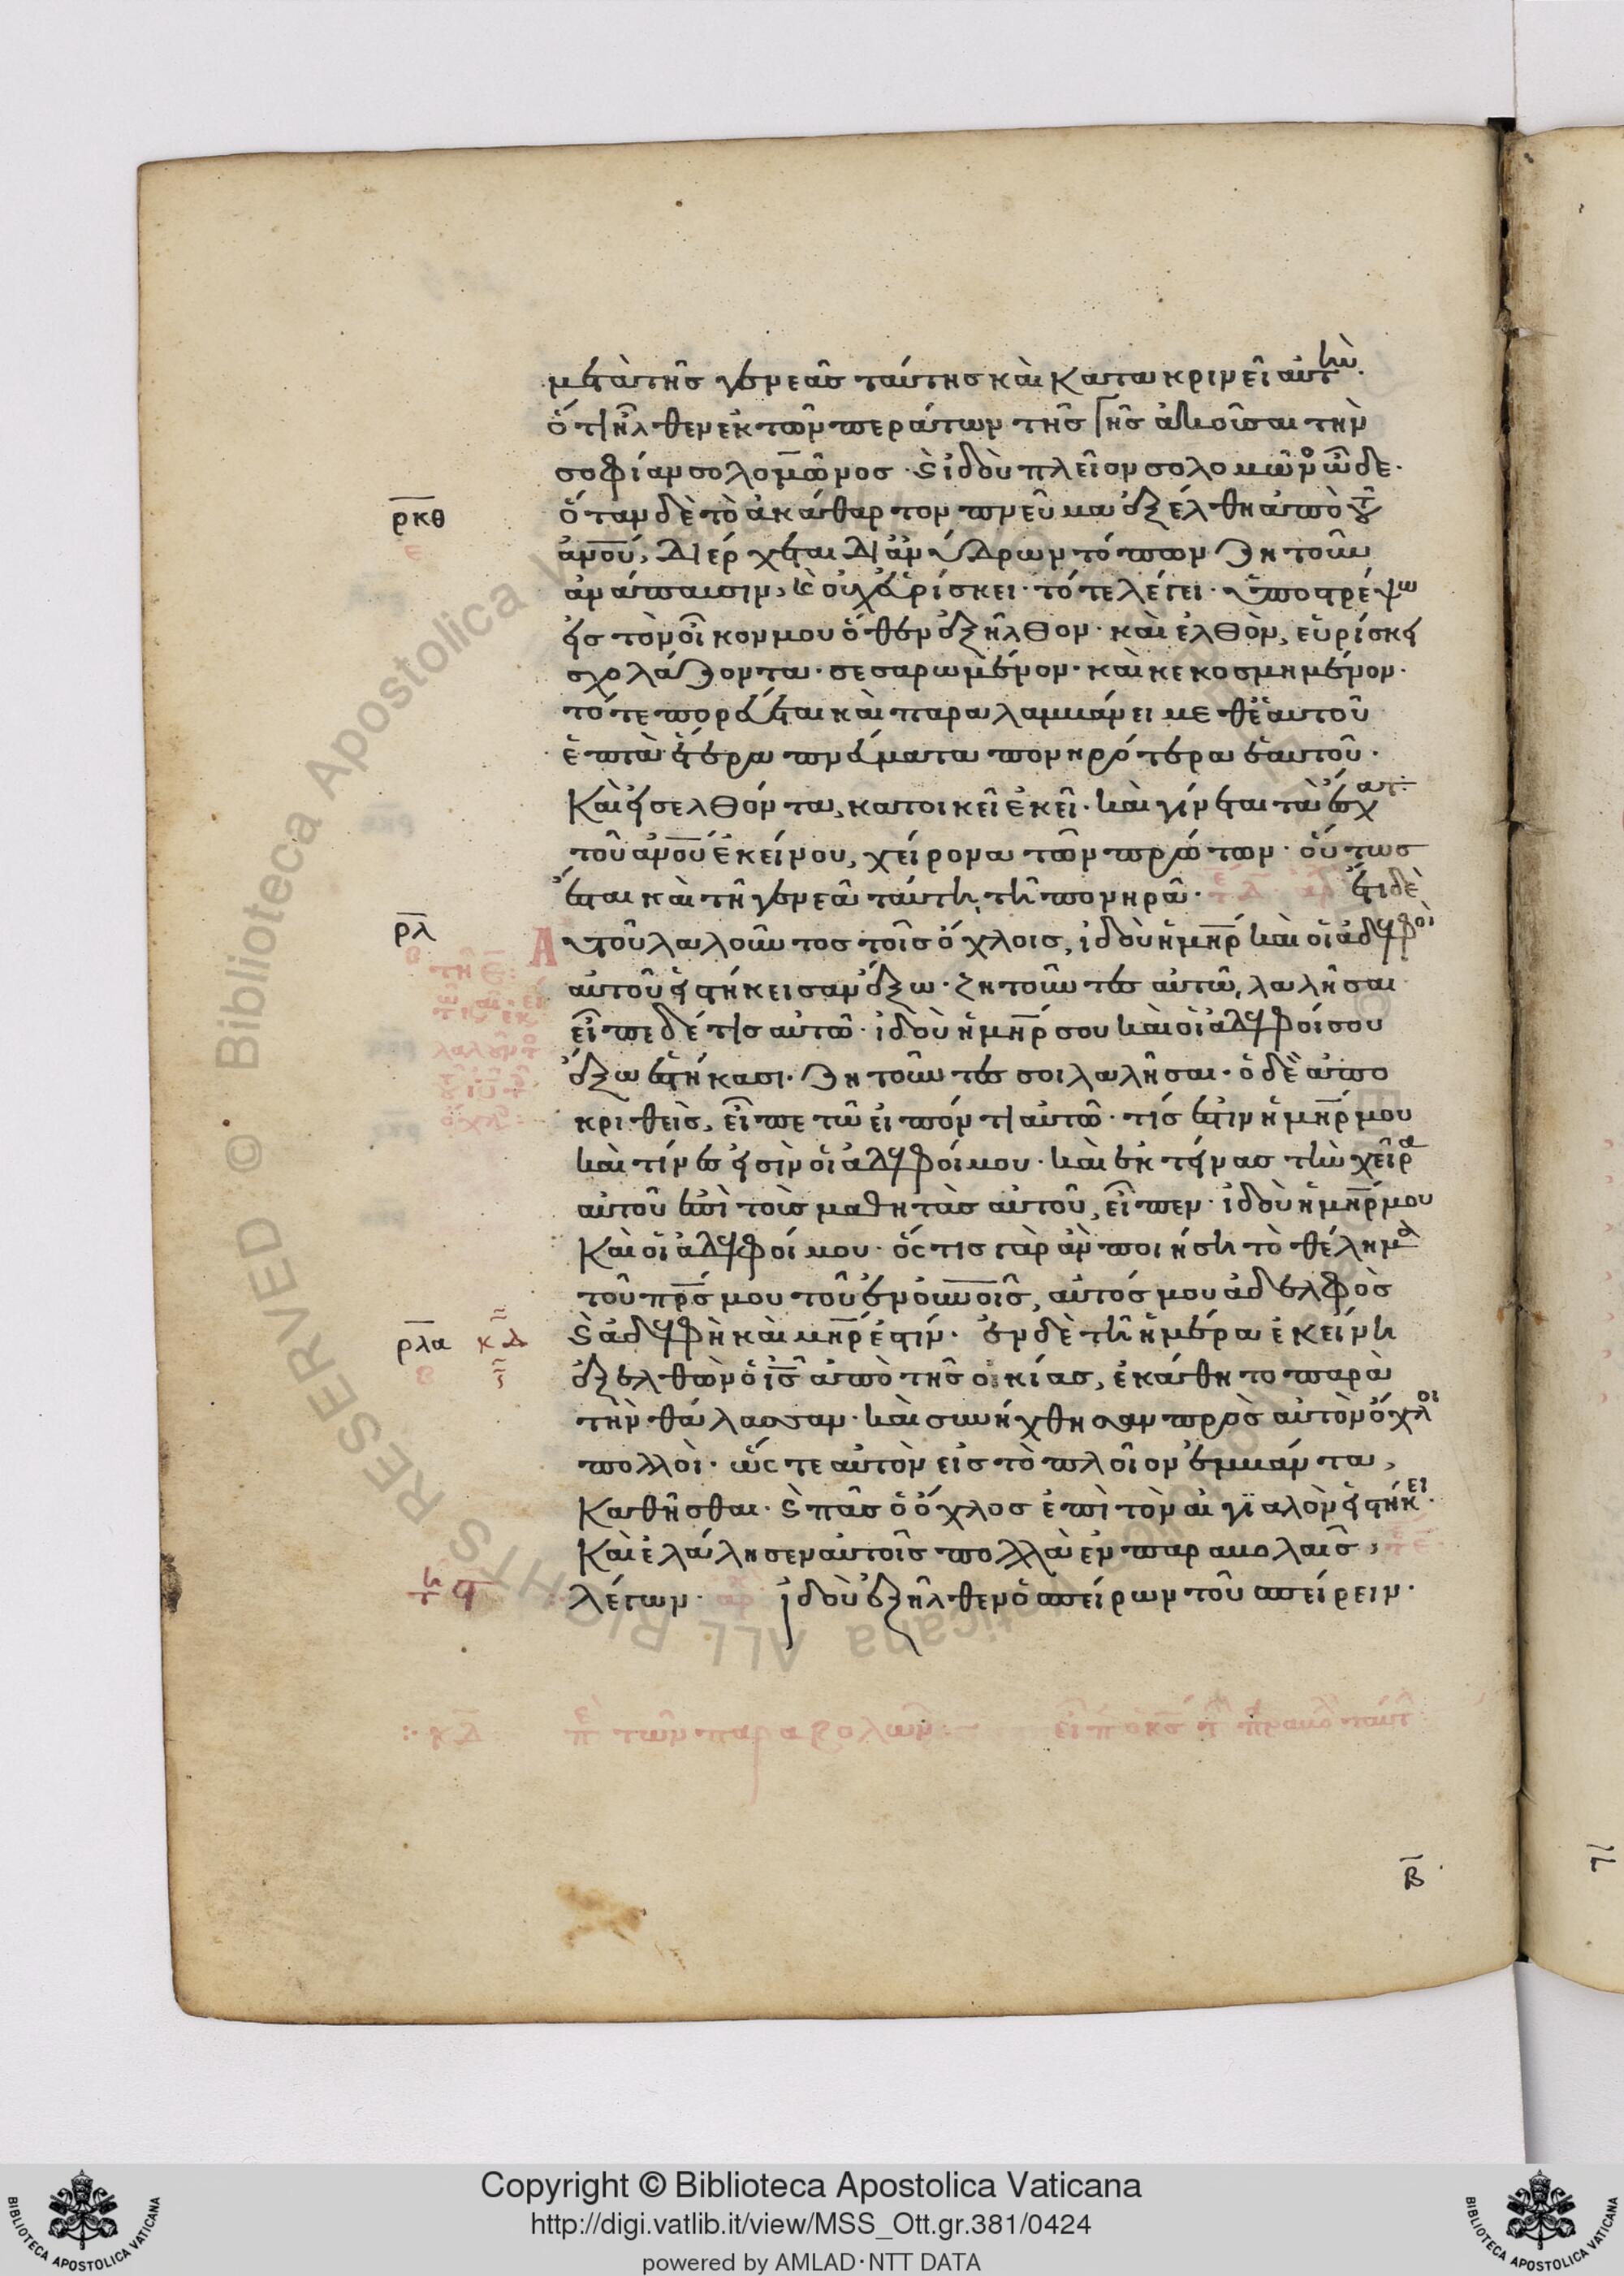 μετὰ τῆς γενεᾶς ταύτης καὶ κατακρινεῖ αὐτὴν.
ὅτι ἦλθεν ἐκ τῶν περάτων τῆς γῆς ἀκοῦσαι τὴν
σοφίαν σολομῶνος· καὶ ἰδοὺ πλεῖον σολομῶνος ὧδε.
ρκθ ὅταν δὲ τὸ ἀκάθαρτον πνεῦμα ἐξέλθη ἀπὸ τοῦ
ε
ἀνου, διέρχεται δι ἀνύδρων τόπων ζητοῦν
ἀνάπαυσιν, καὶ οὐχ εὑρίσκει· τότε λέγει· ὑποστρέψω
εἰς τὸν οἶκον μου ὅθεν ἐξῆλθον· καὶ ἐλθὸν, εὑρίσκει
σχολάζοντα· σεσαρωμένον· καὶ κεκοσμημένον.
τότε πορεύεται καὶ παραλαμβάνει μεθ ἑαυτοῦ
ἑπτὰ ἕτερα πνεύματα πονηρότερα ἑαυτοῦ.
καὶ εἰσελθόντα, κατοικεῖ ἐκεῖ· καὶ γίνεται τὰ ἔσχατ
τοῦ ἀνου ἐκείνου, χείρονα τῶν πρώτων· οὕτως
ἔσται καὶ τῆ γενεᾶ ταύτη τῆ πονηρᾶ· ἔτι δὲ
ρλ Αυτοῦ λαλοῦντος τοῖς ὄχλοις, ἰδοὺ ἡ μηρ καὶ οἱ ἀδελφοὶ
αὐτοῦ εἱστήκεισαν ἔξω· ζητοῦντες αὐτῶ λαλῆσαι
εἶπε δέ τις αὐτῶ· ἰδοὺ ἡ μηρ σου καὶ οἱ ἀδελφοί σου
ἔξω ἑστήκασι· ζητοῦντές σοι λαλῆσαι· ὁ δὲ ἀπο
κριθεὶς, εἶπε τῶ εἰπόντι αὐτῶ· τίς ἐστιν ἡ μηρ μου
καὶ τίνες εἰσὶν οἱ ἀδελφοί μου· καὶ ἐκτείνας τὴν χεῖρα
αὐτοῦ ἐπὶ τοὺς μαθητὰς αὐτοῦ, εἶπεν· ἰδοὺ ἡ μηρ μου
καὶ οἱ ἀδελφοί μου· ὅστις γὰρ ἂν ποιήση τὸ θέλημα
τοῦ πρς μου τοῦ ἐν οὐνοις, αὐτός μου ἀδελφὸς
ρλα κδ καὶ ἀδελφὴ καὶ μηρ ἐστίν· ἐν δὲ τῆ ἡμέρα ἐκείνη
ἐξελθὼν ὁ ις ἀπὸ τῆς οἰκίας, ἐκάθητο παρὰ
τὴν θάλασσαν· καὶ συνήχθησαν πρὸς αὐτὸν ὄχλοι
πολλοὶ· ὥστε αὐτὸν εἰς τὸ πλοῖον ἐμβάντα,
καθῆσθαι· καὶ πᾶς ὁ ὄχλος ἐπὶ τὸν αἰγϊαλὸν εἱστήκει.
καὶ ἐλάλησεν αὐτοῖς πολλὰ ἐν παραβολαῖς,
λέγων· ἰδοὺ ἐξῆλθεν ὁ σπείρων τοῦ σπείρειν.
κδ τῶν παραβολῶν
β
Copyright © Biblioteca Apostolica Vaticana
http://digi.vatlib.it/view/MSS_Ott.gr.381/0424
powered by AMLAD·NTT DATA